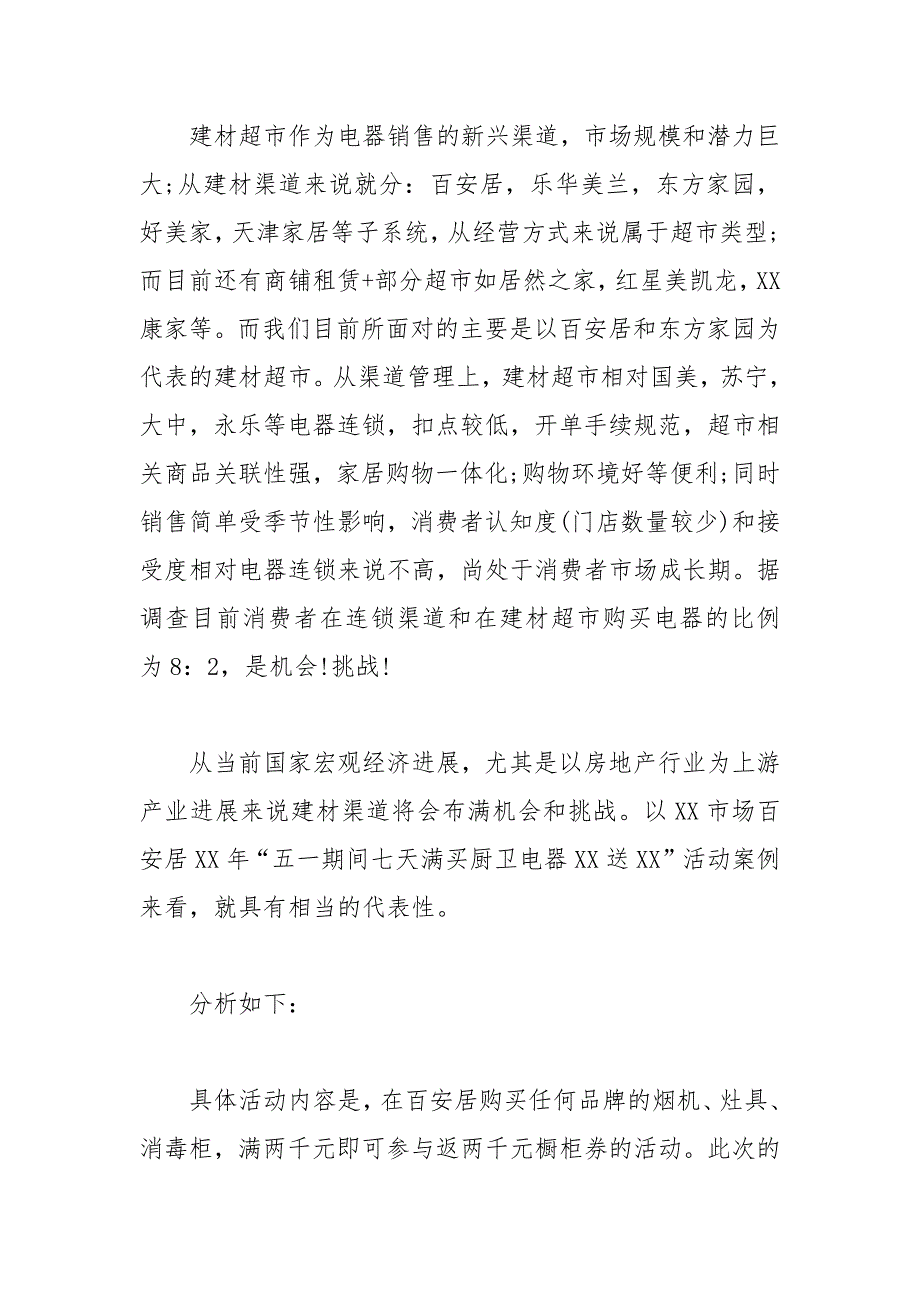 建材超市作为电器销售的新兴渠道，市场规模和潜力巨
大;从建材渠道来说就分：百安居，乐华美兰，东方家园，
好美家，天津家居等子系统，从经营方式来说属于超市类型;
而目前还有商铺租赁+部分超市如居然之家，红星美凯龙，XX
康家等。而我们目前所面对的主要是以百安居和东方家园为
代表的建材超市。从渠道管理上，建材超市相对国美，苏宁，
大中，永乐等电器连锁，扣点较低，开单手续规范，超市相
关商品关联性强，家居购物一体化;购物环境好等便利;同时
销售简单受季节性影响，消费者认知度(门店数量较少)和接
受度相对电器连锁来说不高，尚处于消费者市场成长期。据
调查目前消费者在连锁渠道和在建材超市购买电器的比例
为8：2，是机会!挑战!
从当前国家宏观经济进展，尤其是以房地产行业为上游
产业进展来说建材渠道将会布满机会和挑战。以XX市场百
安居XX年“五一期间七天满买厨卫电器XX送XX”活动案例
来看，就具有相当的代表性。
分析如下：
具体活动内容是，在百安居购买任何品牌的烟机、灶具、
消毒柜，满两千元即可参与返两千元橱柜券的活动。此次的